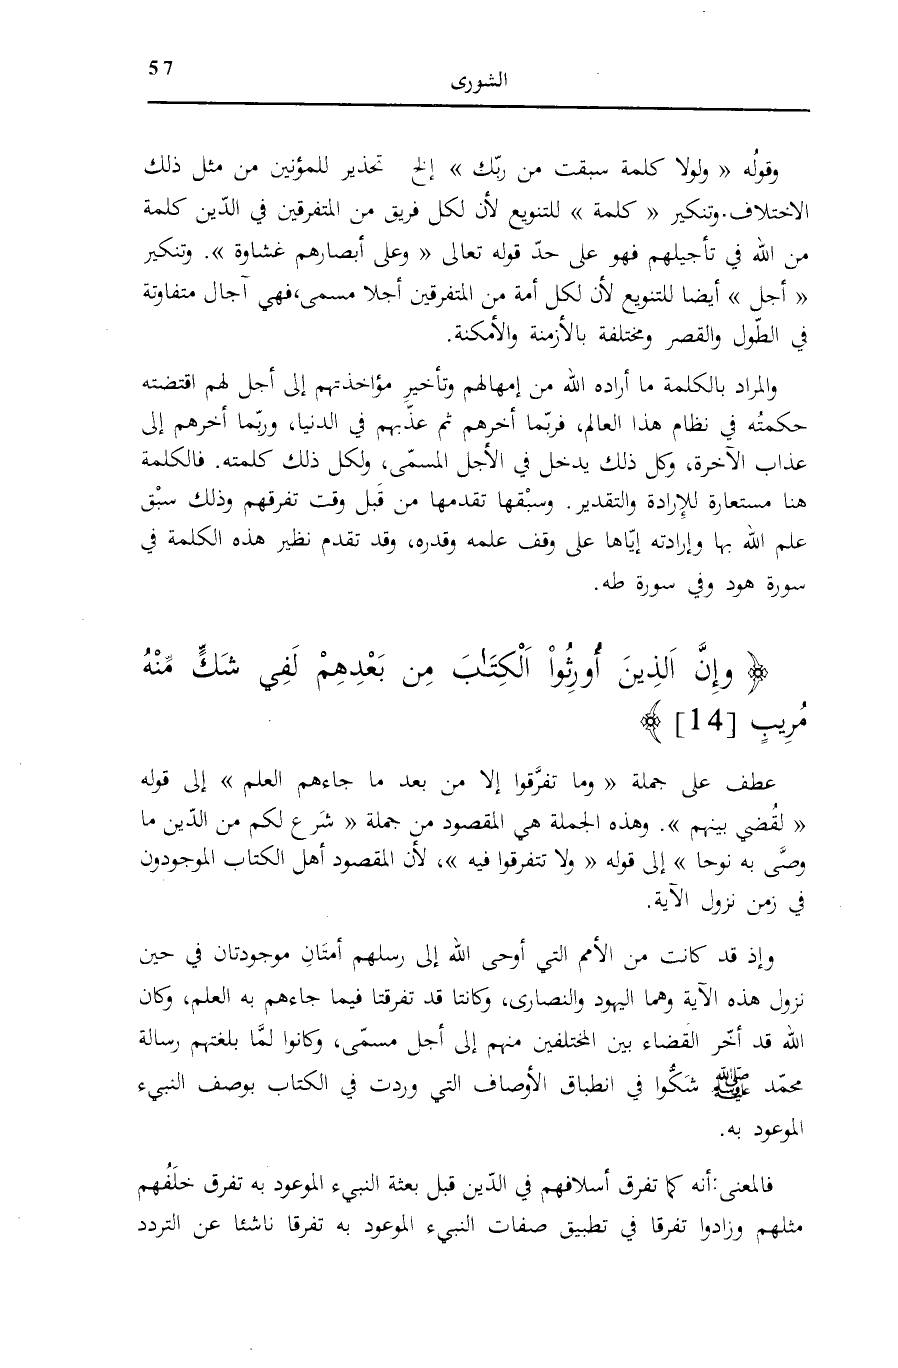 57
الشورى
وقولُه « ولولا كلمة سبقت من ربّك » إلخ تحذير للمؤنين من مثل ذلك
الاختلاف.وتنكير « كلمة » للتنويع لأن لكل فريق من المتفرقين في الدّين كلمة
من الله في تأجيلهم فهو على حدّ قوله تعالى « وعلى أبصارهم غشاوة ». وتنكير
« أجل » أيضا للتنويع لأن لكل أمة من المتفرقين أجلا مسمى،فهي آجال متفاوتة
في الطّول والقصر ومختلفة بالأزمنة والأمكنة.
والمراد بالكلمة ما أراده الله من إمهالهم وتأخيرِ مؤاخذتهم إلى أجل لهم اقتضته
حكمتُه في نظام هذا العالم، فربّما أخرهم ثم عذّبهم في الدنيا، وربّما أخرهم إلى
عذاب الآخرة، وكل ذلك يدخل في الأجل المسمّى، ولكل ذلك كلمته. فالكلمة
هنا مستعارة للإرادة والتقدير. وسبْقها تقدمها من قَبل وقت تفرقهم وذلك سبْق
علم الله بها وإرادته إيّاها على وقف علمه وقدره، وقد تقدم نظير هذه الكلمة في
سورة هود وفي سورة طه.
﴿ وإِنَّ اَلذِينَ أُورِثُواْ اَلْكِتَٰبَ مِن بَعْدِهِمْ لَفِي شَكٍّ مِّنْهُ
مُرِيبٍ [14] ﴾
عطف على جملة « وما تفرَّقوا إلا من بعد ما جاءهم العلم » إلى قوله
« لقُضي بينهم ». وهذه الجملة هي المقصود من جملة « شَرع لكم من الدّين ما
وصَّى به نوحا » إلى قوله « ولا تتفرقوا فيه »، لأن المقصود أهل الكتاب الموجودون
في زمن نزول الآية.
وإذ قد كانت من الأمم التي أوحى الله إلى رسلهم أمتَانِ موجودتان في حين
نزول هذه الآية وهما اليهود والنصارى، وكانتا قد تفرقتا فيما جاءهم به العلم، وكان
الله قد أخّر القضاء بين المختلفين منهم إلى أجل مسمّى، وكانوا لمَّا بلغتهم رسالة
محمّد ﷺ شكُّوا في انطباق الأوصاف التي وردت في الكتاب بوصف النبيء
الموعود به.
فالمعنى:أنه كما تفرق أسلافهم في الدّين قبل بعثة النبيء الموعود به تفرق خلَفُهم
مثلهم وزادوا تفرقا في تطبيق صفات النبيء الموعود به تفرقا ناشئا عن التردد